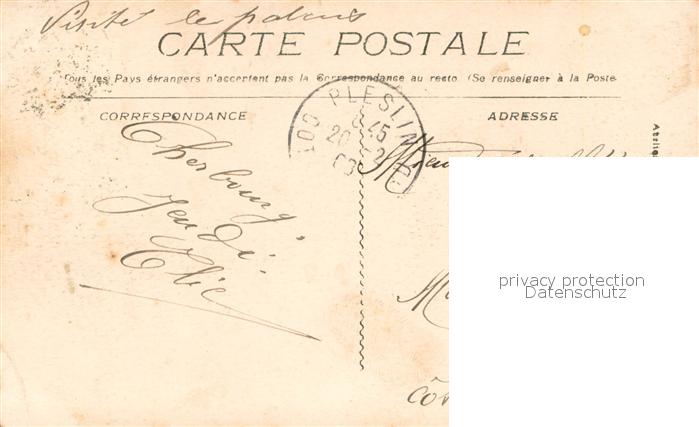 Visité le palais
CARTE POSTALE
Tous les Pays étrangers n'acceptent pas la Correspondance au recto. (Se renseigner à la Poste
CORRESPONDANCE
ADRESSE
PLESLIN
8 45
20
COT
Cherbourg
Jeudi
Elie
privacy protection
Datenschutz